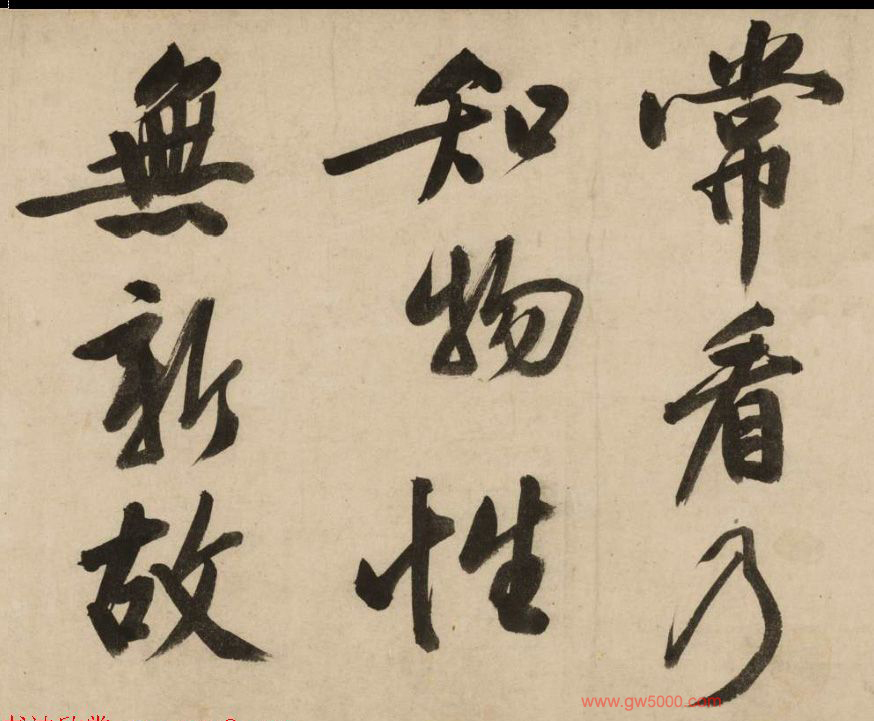 常看乃
知物性
無新故
www.gw5000.com